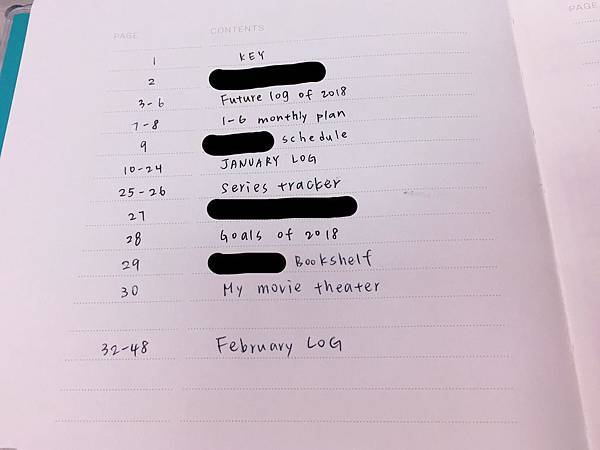 PAGE CONTENTS PAGE
1 KEY
2
3-6 Future log of 2018
7-8 1-6 monthly plan
9 schedule
10-24 JANUARY LOG
25-26 series tracker
27
28 Goals of 2018
29 Bookshelf
30 My movie theater
32-48 February LOG